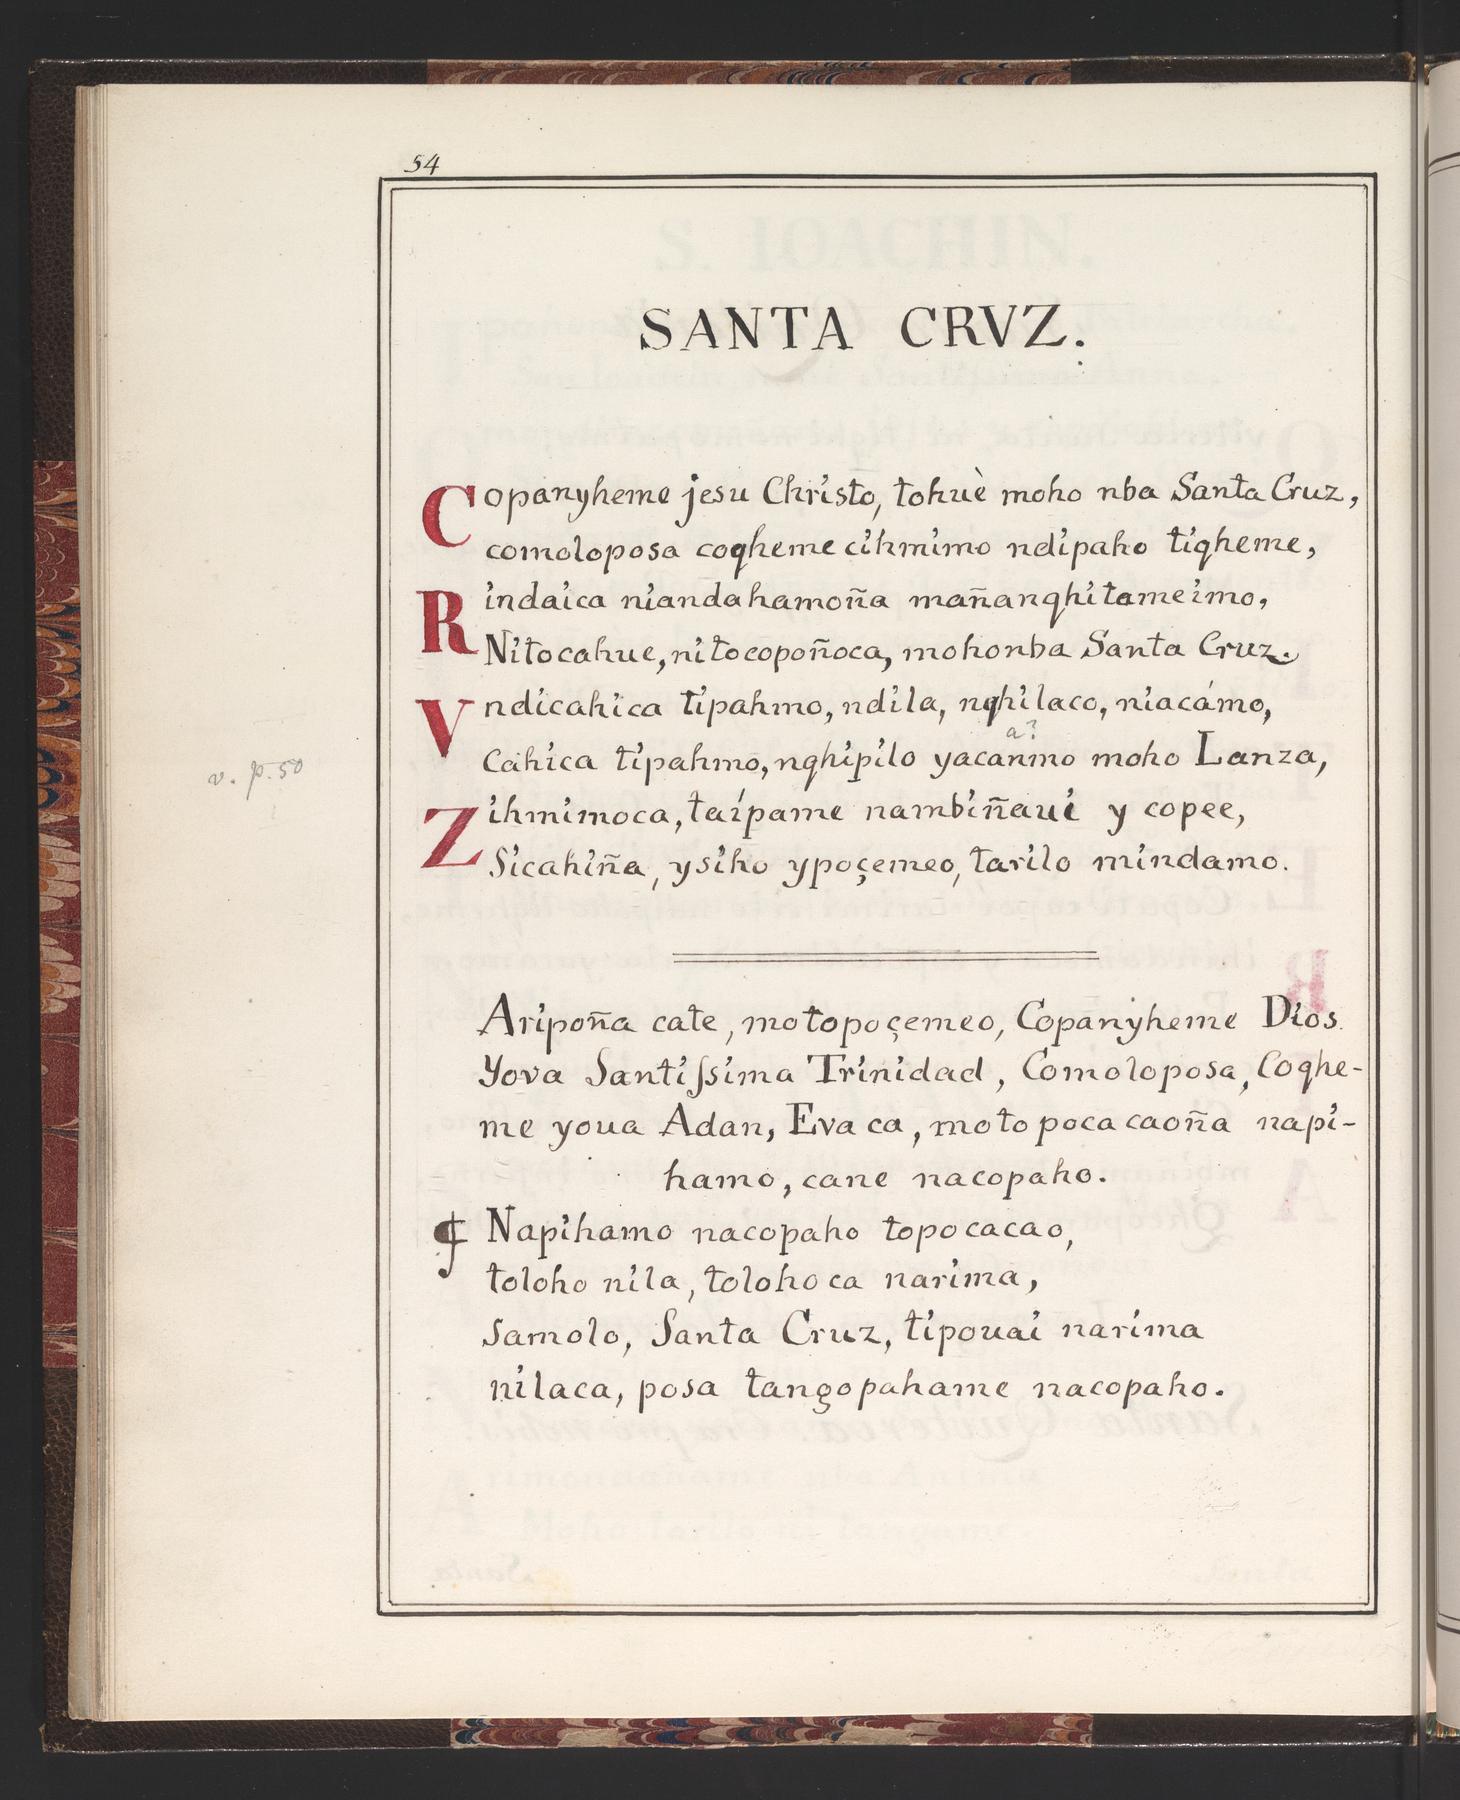 54
SANTA CRVZ.
Copanyheme jesu Christo, tohuè moho nba Santa Cruz,
comoloposa coqheme cihmimo ndipaho tiqheme,
Rindaica niandahamoña mañanqhitameimo,
Nitocahue, nitocopoñoca, mohonba Santa Cruz.
Vndicahica tipahmo, ndila, nqhilaco, niacámo,
a?
v. p. 50
Cahica tipahmo, nqhipilo yacanmo moho Lanza,
Zihmimoca, taípame nambiñaui y copee,
Sicahiña, ysiho ypoçemeo, tarilo mindamo.
Aripoña cate, motopoçemeo, Copanyheme Dios
Yova Santiſsima Trinidad, Comoloposa, Coqhe-
me youa Adan, Eva ca, moto poca caoña napi-
hamo, cane nacopaho.
¶ Napihamo nacopaho topocacao,
toloho nila, toloho ca narima,
samolo, Santa Cruz, tipouai narima
nilaca, posa tangopahame nacopaho.